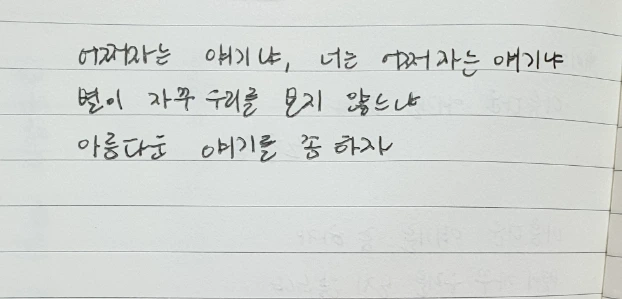 어쩌자는 얘기냐, 너는 어쩌자는 얘기냐
별이 자꾸 우리를 보지 않느냐
아름다운 얘기를 좀 하자